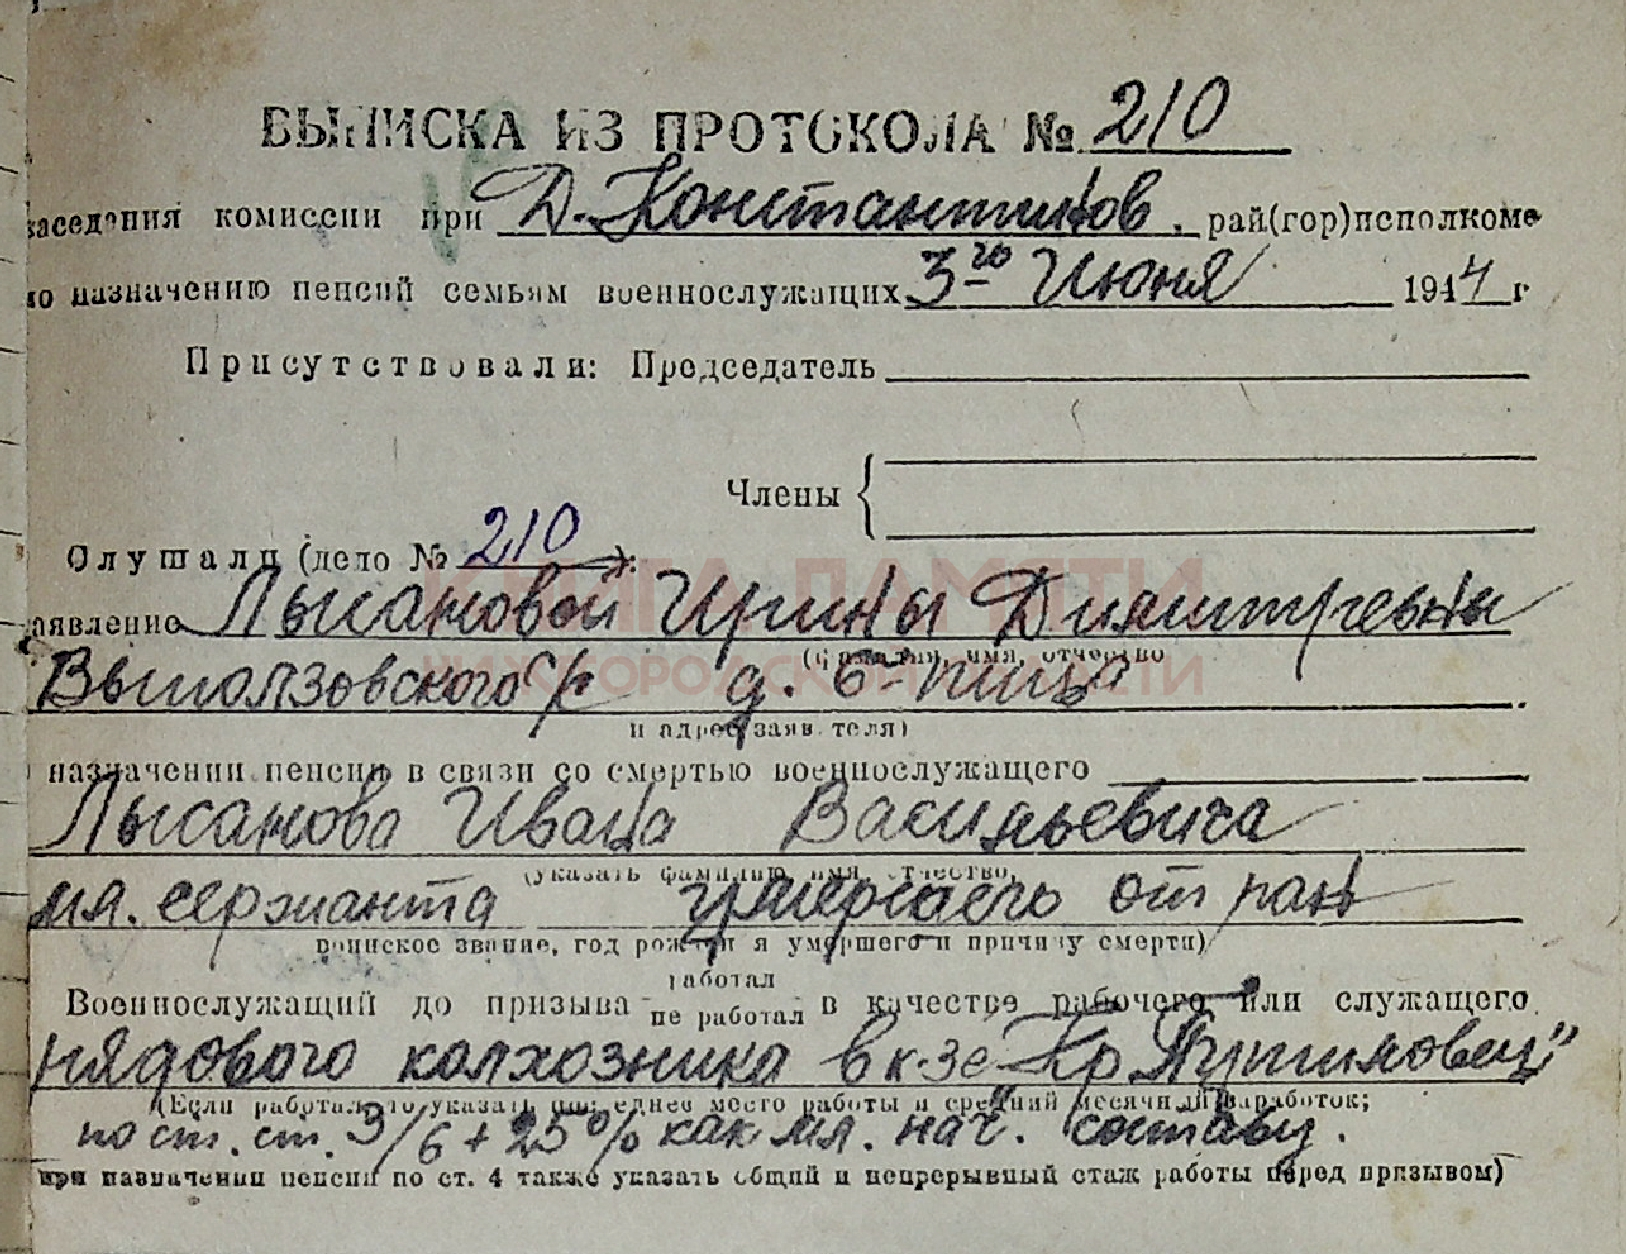 ВЫПИСКА ИЗ ПРОТОКОЛА № 210
заседания комиссии при Д.-Константинов. рай(гор)исполкоме
по назначению пенсий семьям военнослужащих 3го Июня 1944 г
Присутствовали: Председатель
Члены
Слушали (дело № 210)
заявление Лысановой Ирины Димитревны
(фамилия, имя, отчество
Выползовского с/с д. б-Пица
и адрес заявителя)
назначении пенсии в связи со смертью военнослужащего
Лысанова Ивана Васильевича
(указать фамилию, имя, отчество,
мл. сержанта умершего от ран
воинское звание, год рождения умершего и причину смерти)
работал
Военнослужащий до призыва не работал в качестве рабочего или служащего
рядового колхозника в к-зе „Кр Путиловец"
(Если работал, то указать последнее место работы и средний месячный заработок;
по ст. ст. 3/6 + 25% как мл. нач. составу.
при назначении пенсии по ст. 4 также указать общий и непрерывный стаж работы перед призывом)
КНИГА ПАМЯТИ
НИЖЕГОРОДСКОЙ ОБЛАСТИ